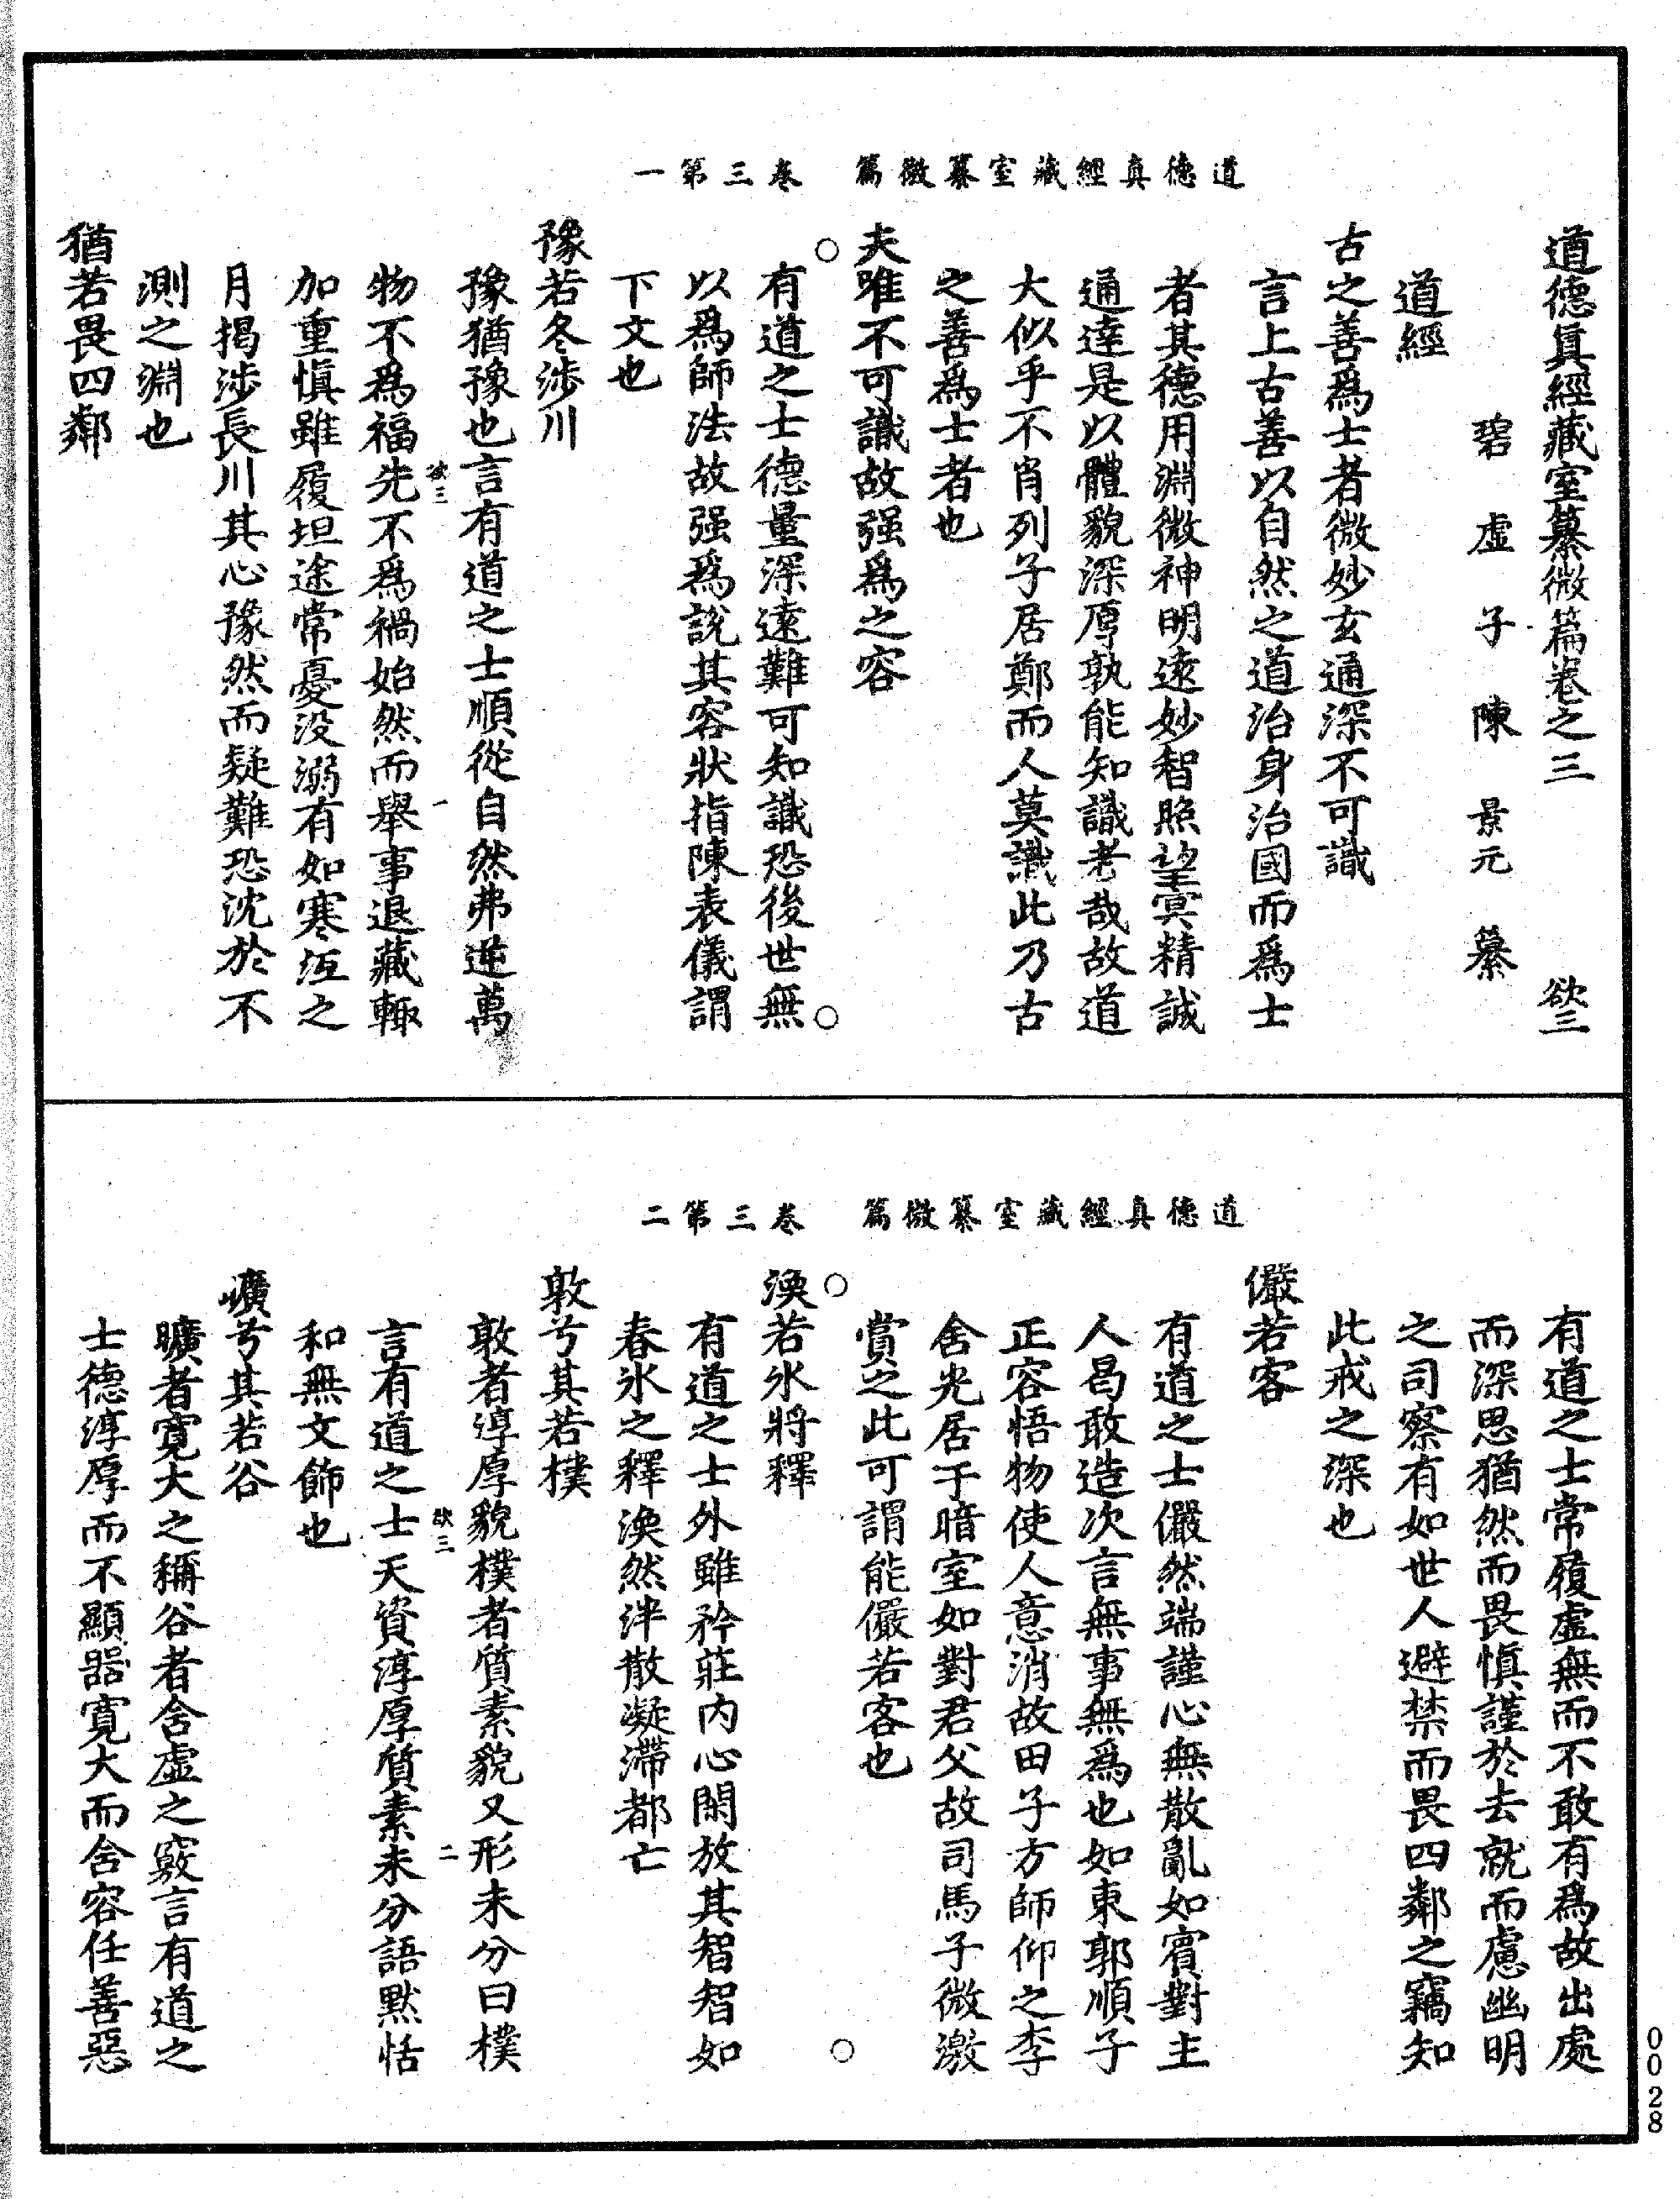 道德真經藏室纂微篇　卷三第一
道德真經藏室纂微篇卷之三　欲三
碧虛子陳景元纂
道經
古之善爲士者微妙玄通深不可識
言上古善以自然之道治身治國而爲士
者其德用淵微神明遠妙智照望冥精誠
通達是以體貌深厚孰能知識老哉故道
大似乎不肖列子居鄭而人莫識此乃古
之善爲士者也
夫唯不可識故强爲之容
有道之士德量深遠難可知識恐後世無
以爲師法故强爲說其容狀指陳表儀謂
下文也
豫若冬涉川
豫猶豫也言有道之士順從自然弗逆萬
欲三　一
物不爲福先不爲禍始然而舉事退藏輙
加重慎雖履坦途常憂没溺有如寒沍之
月揭涉長川其心豫然而疑難恐沈於不
測之淵也
猶若畏四鄰
道德真經藏室纂微篇　卷三第二
有道之士常履虛無而不敢有爲故出處
而深思猶然而畏慎謹於去就而慮幽明
之司察有如世人避禁而畏四鄰之竊知
此戒之深也
儼若客
有道之士儼然端謹心無散亂如賓對主
人曷敢造次言無事無爲也如東郭順子
正容悟物使人意消故田子方師仰之李
舍光居于暗室如對君父故司馬子微激
賞之此可謂能儼若客也
渙若氷將釋
有道之士外雖矜莊内心閑放其智智如
春氷之釋渙然泮散凝滯都亡
敦兮其若樸
敦者淳厚貌樸者質素貌又形未分曰樸
欲三　二
言有道之士天資淳厚質素未分語默恬
和無文飾也
曠兮其若谷
曠者寬大之稱谷者含虛之竅言有道之
士德淳厚而不顯器寬大而含容任善惡
0028